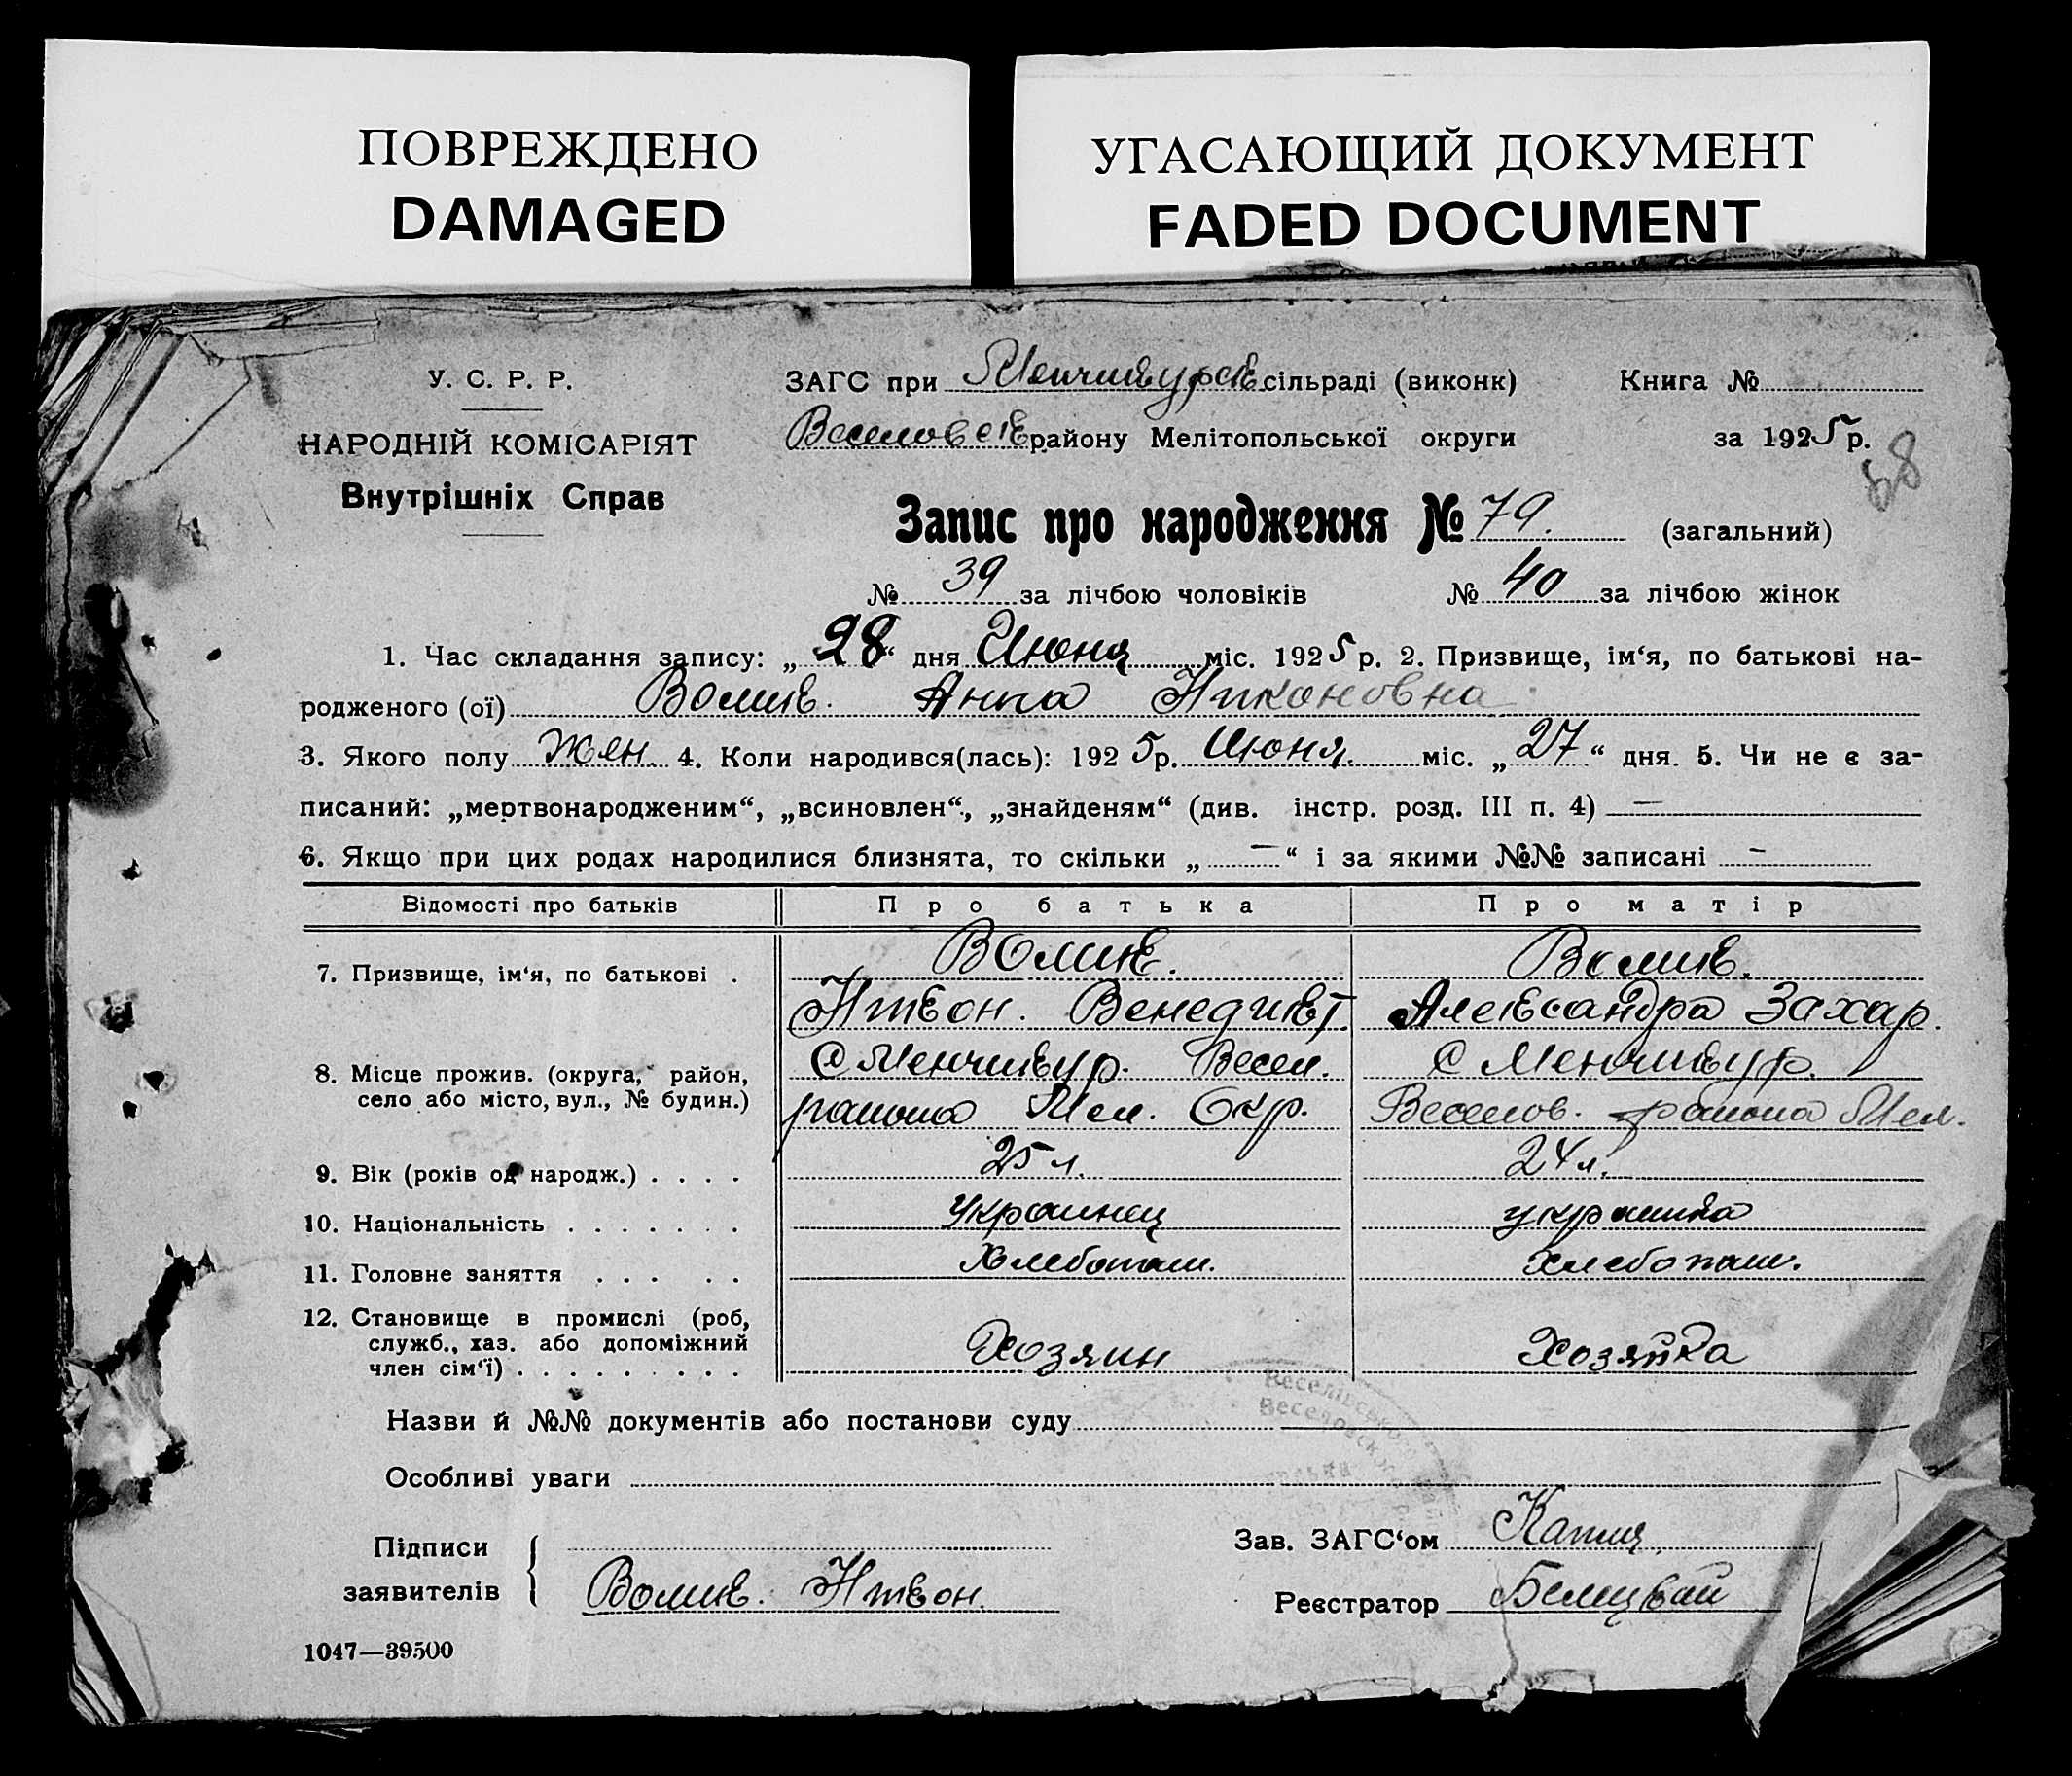 ПОВРЕЖДЕНО
DAMAGED
УГАСАЮЩИЙ ДОКУМЕНТ
FADED DOCUMENT
У. С. Р. Р.
НАРОДНІЙ КОМІСАРІЯТ
Внутрішніх Справ
ЗАГС при Менчикурск сільраді (виконк)
Книга №
Веселовск району Мелітопольської округи
за 1925 р.
88
Запис про народження № 79. (загальний)
№ 39 за лічбою чоловіків № 40 за лічбою жінок
1. Час складання запису: „28“ дня Июня міс. 1925 р. 2. Призвище, ім‘я, по батькові на-
родженого (ої) Волик. Анна Никоновна
3. Якого полу Жен. 4. Коли народився(лась): 1925 р. Июня. міс. „27“ дня. 5. Чи не є за-
писаний: „мертвонародженим“, „всиновлен“, „знайденям“ (див. інстр. розд. III п. 4) —
6. Якщо при цих родах народилися близнята, то скільки „ — “ і за якими №№ записані —
Відомості про батьків Про батька Про матір
7. Призвище, ім‘я, по батькові . Волик. Волик.
Никон. Венедикт. Александра Захар.
8. Місце прожив. (округа, район, село або місто, вул., № будин.) с Менчикур. Весел. с Менчикур.
района Мел. Окр. Веселов. района Мел.
9. Вік (років од народж.) . . . . 25 л. 24 л.
10. Національність . . . . . . . Украинец украинка
11. Головне заняття . . . . . Хлебопаш. Хлебопаш.
12. Становище в промислі (роб,
служб., хаз. або допоміжний Хозяин Хозяйка
член сім‘ї) . . . . . . . . .
Назви й №№ документів або постанови суду
Особливі уваги
Підписи
заявителів Волик. Никон.
Зав. ЗАГС‘ом
Реєстратор Белицкий
1047—39500